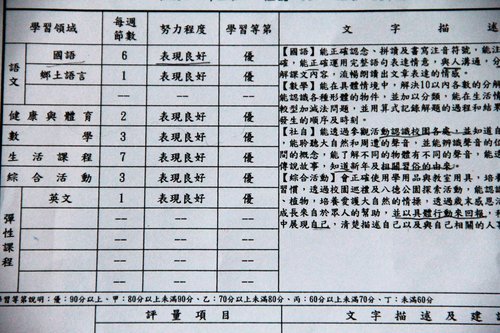 學習領域 每週節數 努力程度 學習等第 文字描
語文 國語 6 表現良好 優
鄉土語言 1 表現良好 優
健康與體育 2 表現良好 優
數學 3 表現良好 優
生活課程 7 表現良好 優
綜合活動 3 表現良好 優
彈性課程 英文 1 表現良好 優
-- -- --
-- -- --
-- -- --
-- -- --
【國語】能正確認念、拼讀及書寫注音符號，能注
確，能正確運用完整語句表達情意，與人溝通，分
解課文內容，流暢朗讀出文章表達的情感。
【數學】能在具體情境中，解決10以內各數的分解
能認識各種形體的物件，並加以分類，能在生活情
較型加減法問題，並用算式記錄解題的過程和結果
發生的順序及時刻。
【社自】能透過參觀活動認識校園各處，並知道自
，能聆聽大自然和周遭的聲音，並能辨識聲音的位
間的概念，能了解不同的物體有不同的聲音，能進
傳說故事，知道新年及相關習俗的由來。
【綜合活動】會正確使用學習用品與教室用具，培養
習慣，透過校園巡禮及八德公園探索活動，能認識
、植物，培養愛護大自然的情操，透過歲末感恩活
成長來自於眾人的幫助，並以具體行動來回報，
中展現自己，清楚描述自己以及與自己相關的人事
學習等第說明：優：90分以上、甲：80分以上未滿90分、乙：70分以上未滿80分、丙：60分以上未滿70分、丁：未滿60分
評量項目 文字描述及建